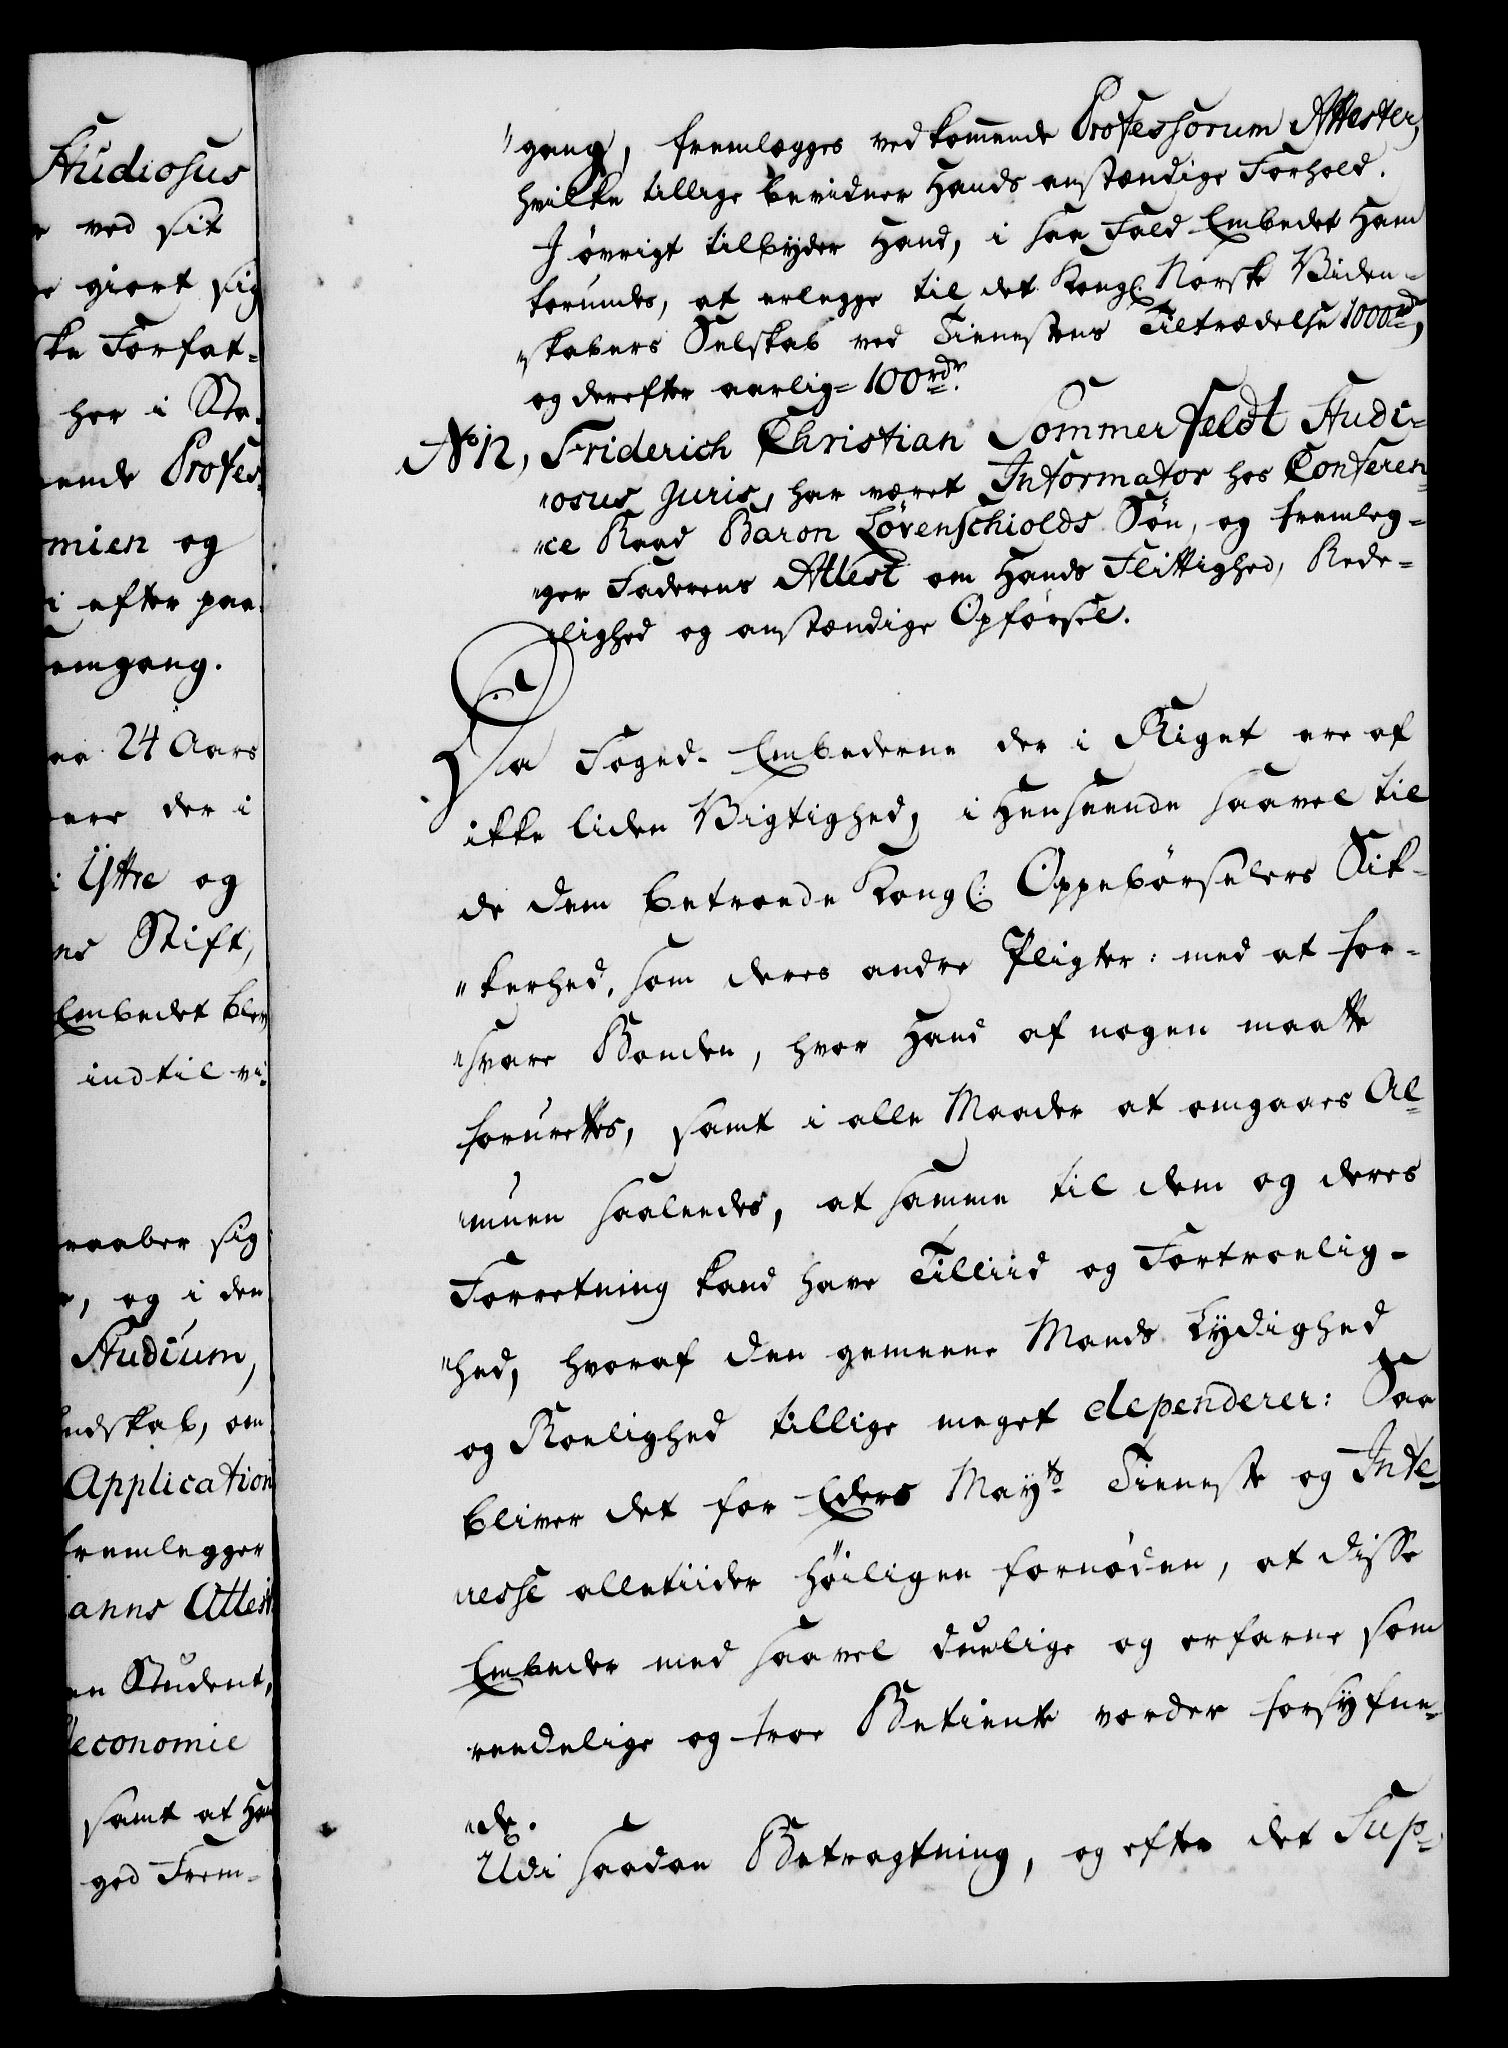 Studiosus
ved sit
giort sig
ske Forfat-
her i Sta-
ende Profes-
mien og
i efter paa-
emgang.
24 Aars
der i
i Ÿttre og
Stift,
Embedet blev
indtil vi-
raaber sig
, og i den
Studium,
ndskab, om
Application
fremlegger
anns Attest
en Student,
Oeconomie
samt at Han
god Frem-
"gang, fremlægges vedkom̅ende Professorum Attester,
hvilke tillige bevidner Hands anstændige Forhold.
I övrigt tilbyder Hand, i saa Fald Embedet Ham
forundes, at erlegge til det Kongl. Norske Viden-
"skabers Selskab ved Tienestens Tiltrædelse 1000rd,
og derefter aarlig= 100rdr.
No 12, Friderich Christian Sommerfeldt Studi-
"osus Juris, har været Informator hos Conferen-
"ce Raad Baron Lövenschiolds Sön, og fremleg-
"ger Faderens Attest om Hands Flittighed, Rede-
"lighed og anstændige Opförsel.
Da Foged-Embederne der i Riget ere af
ikke liden Vigtighed, i Henseende saavel til
de dem betroede Kongl: Oppebörselers Sik-
"kerhed, som deres andre Pligter: med at for-
"svare Bonden, hvor Hand af nogen maatte
forurettes, samt i alle Maader at omgaaes Al-
"muen saaledes, at samme til dem og deres
Forretning kand have Tilliid og Fortroelig-
"hed, hvoraf den gemeene Mands Lydighed
og Roelighed tillige meget dependerer: Saa
bliver det for Eders Mayts Tieneste og Inte-
"resse alletiider höiligen fornöden, at disse
Embeder med saavel duelige og erfarne som
reedelige og troe Betiente vorder forsyfne-
"de.
Udi saadan Betragtning, og efter det Sup-